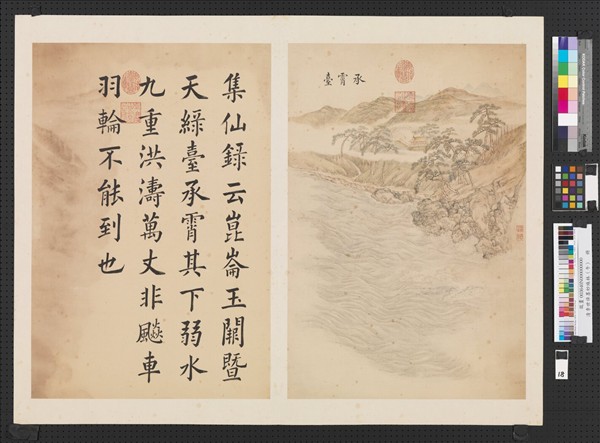 承霄臺
集仙錄云崑崙玉闕暨
天綠臺承霄其下弱水
九重洪濤萬丈非飈車
羽輪不能到也
18